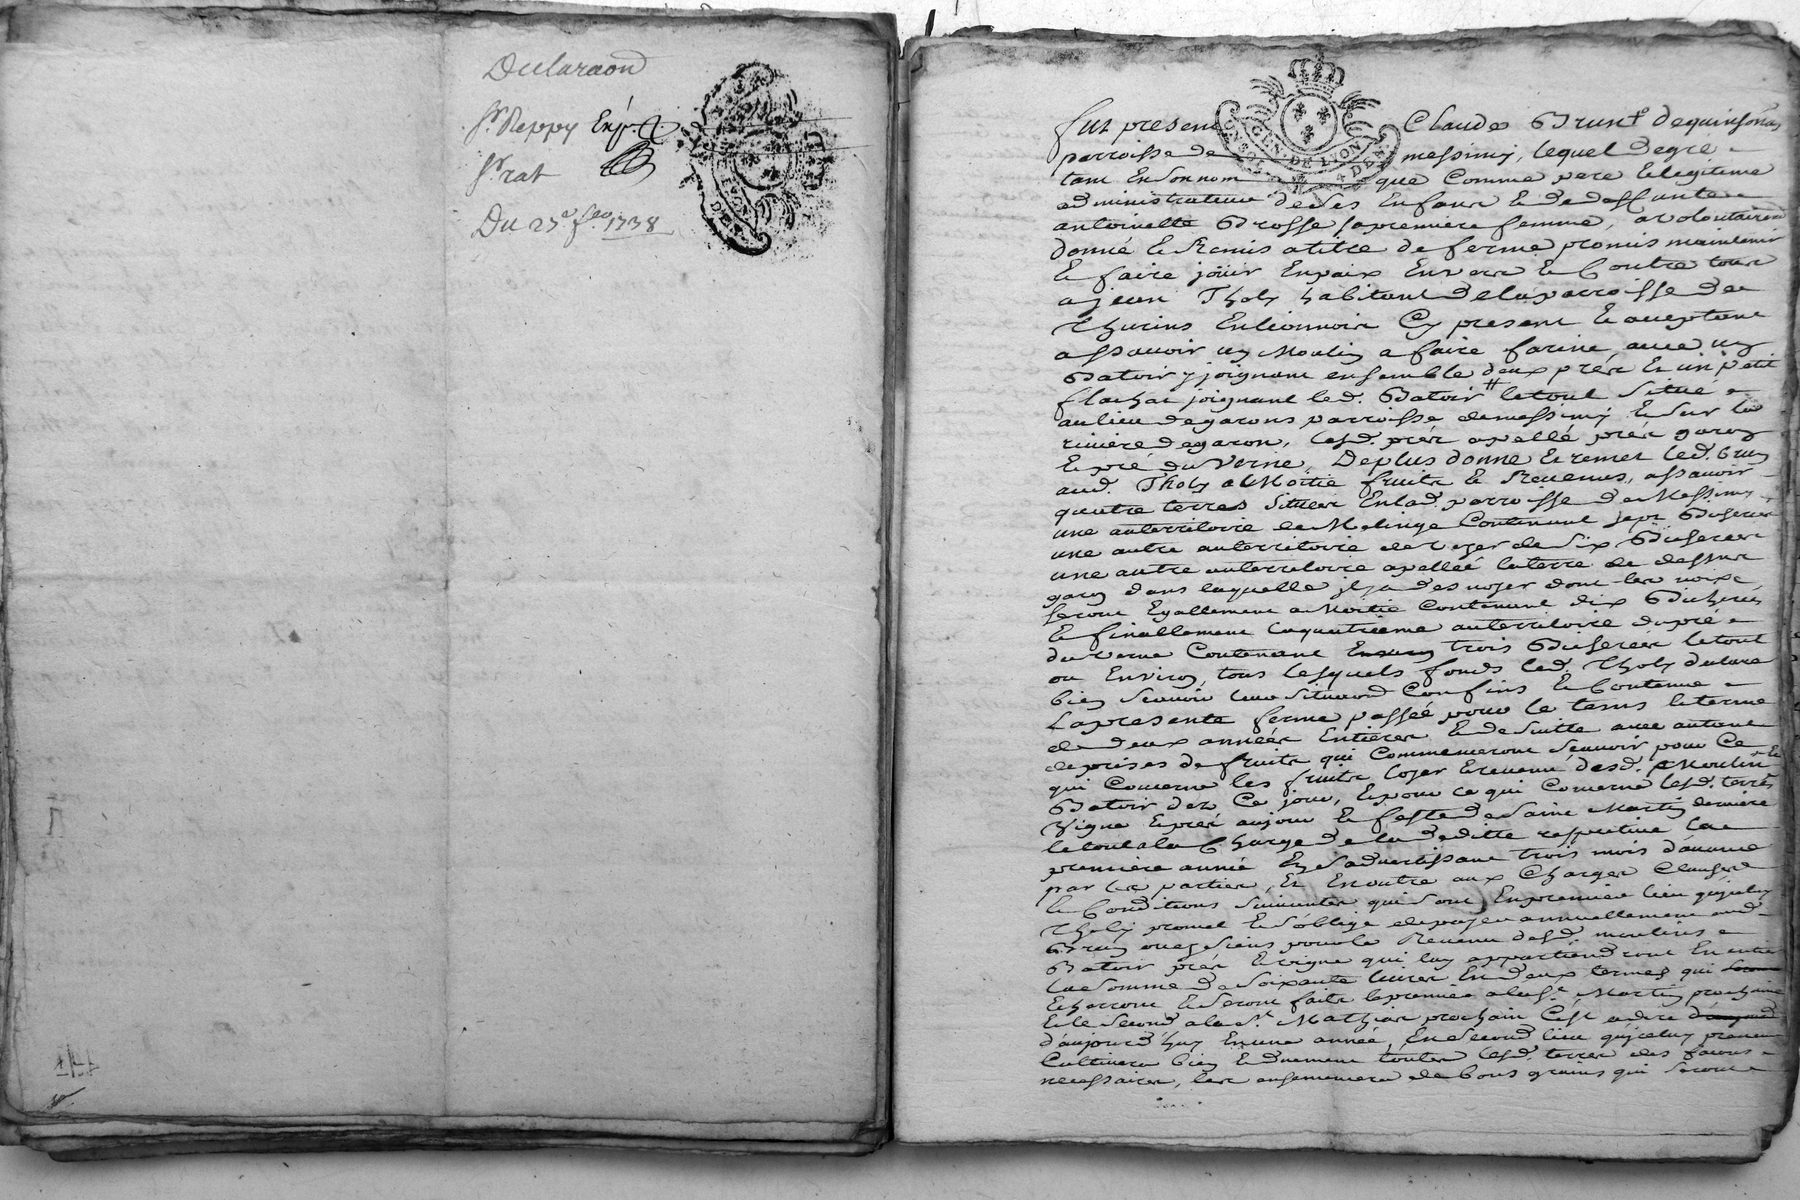 Declaraon
Sr Reppy Exp.
Sr rat
Du 27e fev. 1738
GEN. DE LYON
4 DEN.
fut present Claude Brun dequinsonas
parroisse de messimy, lequel degre
tant en son nom que comme pere & legitime
administrateur de ses enfans & de deffunte
antoinette Brosse sa premiere femme, a volontairemt
donné & Remis a titre de ferme promis maintenir
& faire jöuir en paix envers & Contre tous
a jean Tholy habitant de la parroisse de
Thurins en lionnois Cy present & acceptant
assavoir un Moulin a faire farine avec un
Batoir y joignant ensemble deux prés & un petit
flachat joignant led. Batoir le tout situé
au lieu de garons parroisse de messimy & sur la
riviere de garon, lesd. prés apellé prés garon
& pré du Verne, De plus donne & remet led. brun
aud. Tholy a Moitié fruits & Revenus, assavoir
quatre terres situées en lad. parroisse de Messimy
une au territoire de Malinge Contenant sept Bicherées
une autre au territoire de voger de six Bicherées
une autre au territoire apellée la terre de dessus
garon dans laquelle il y a des noyer dont les noix
seront Egallement a Moitié Contenant dix Bicherées
& finallement la quatrieme au territoire du pré
du verne Contenant trois Bicherées le tout
ou Environ, tous lesquels fonds led. Tholy declare
bien scavoir leur situaon Confins & Contenue
La presente ferme passée pour le tems & terme
de deux années Entieres & de suitte avec autant
de prises de fruits qui Commenceront scavoir pour Ce
qui Concerne les fruits loyer & revenu desd. Moulin &
Batoir dez Ce jour, & pour ce qui Concerne lesd. terres
Vigne & prés aujour & feste de saint Martin derniere
le tout a la Charge de la deditte respective la
premiere année En s'advertissant trois mois d'avance
par les parties, Et En outre aux Charges Clauses
& Conditions suivantes qui sont En premier lieu quicelui
Tholy promet & s'oblige de payer annuellement aud.
Brun ou es siens pour le Revenu desd. moulins
Batoir prés & vigne qui luy appartiendront En entier
la somme de soixante livres En deux termes qui
Echerront & seront faits le premier a la St Martin prochaine
& le second a la St Mathias prochain C'est a dire
d'aujourd'huy En une année, En second lieu quicelui preneur
Cultivera bien & duement touttes lesd. terres des façons
necessaires, les ensemencera de bons grains qui seront